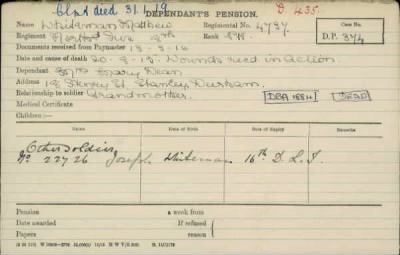 Clmt died 31.1.19
DEPENDANT'S PENSION.
D 435
Name Whiteman Matthew Regimental No. 4737
Case No.
Regiment Fus Rank Pte
D.P. 374
Documents received from Paymaster 18-8-16
Date and cause of death 20-8-15 Wounds recd in action
Dependant Mary Dean
Address 18 Henry St Stanley Durham
Relationship to soldier Grandmother. DEAD
Medical Certificate
Children:—
Name Date of Birth Date of Expiry Remarks
Other soldier
No. 22726 Joseph Whiteman 16th D.L.I.
Pension a week from
Date awarded If refused
Papers reason